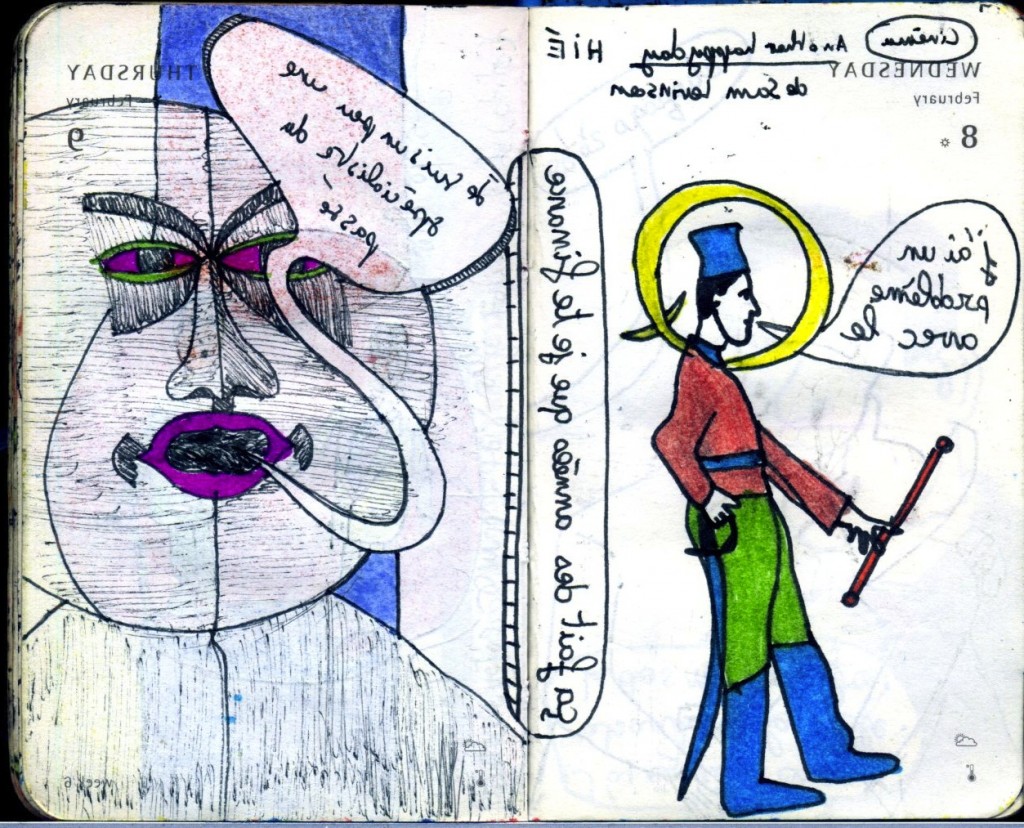 THURSDAY
February
9
Je suis un peu une
spécialiste du
passé
week 6
Ça fait des années que je te
Cinéma
Another happy day
Hi !!!
de Sam Levinson
WEDNESDAY
February
8
j'ai un
problème
avec le